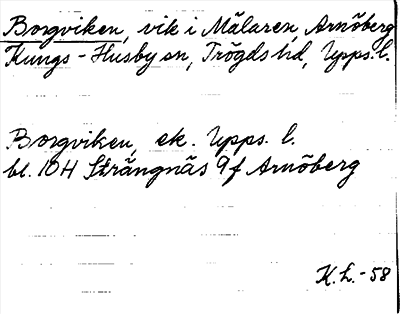 Borgviken, vik i Mälaren, Arnöberg
Kungs-Husby sn, Trögds hd, Upps. l.
Borgviken, ek. Upps. l.
bl. 10H Strängnäs 9f Arnöberg
K.L.-58